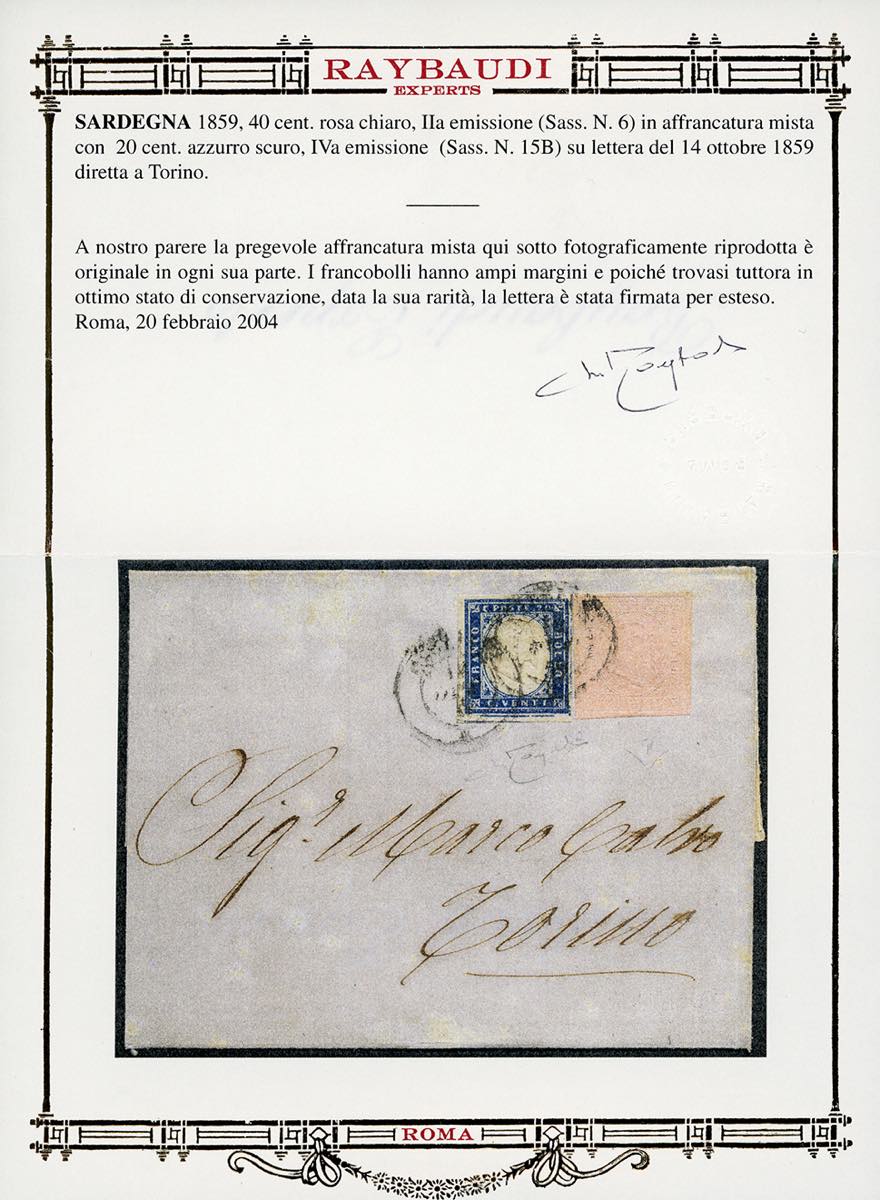 RAYBAUDI
EXPERTS
SARDEGNA 1859, 40 cent. rosa chiaro, IIa emissione (Sass. N. 6) in affrancatura mista
con 20 cent. azzurro scuro, IVa emissione (Sass. N. 15B) su lettera del 14 ottobre 1859
diretta a Torino.
A nostro parere la pregevole affrancatura mista qui sotto fotograficamente riprodotta è
originale in ogni sua parte. I francobolli hanno ampi margini e poiché trovasi tuttora in
ottimo stato di conservazione, data la sua rarità, la lettera è stata firmata per esteso.
Roma, 20 febbraio 2004
C. POSTE 20
FRANCO
BOLLO
C. VENTI
Sigr. Marco Calvo
Torino
ROMA